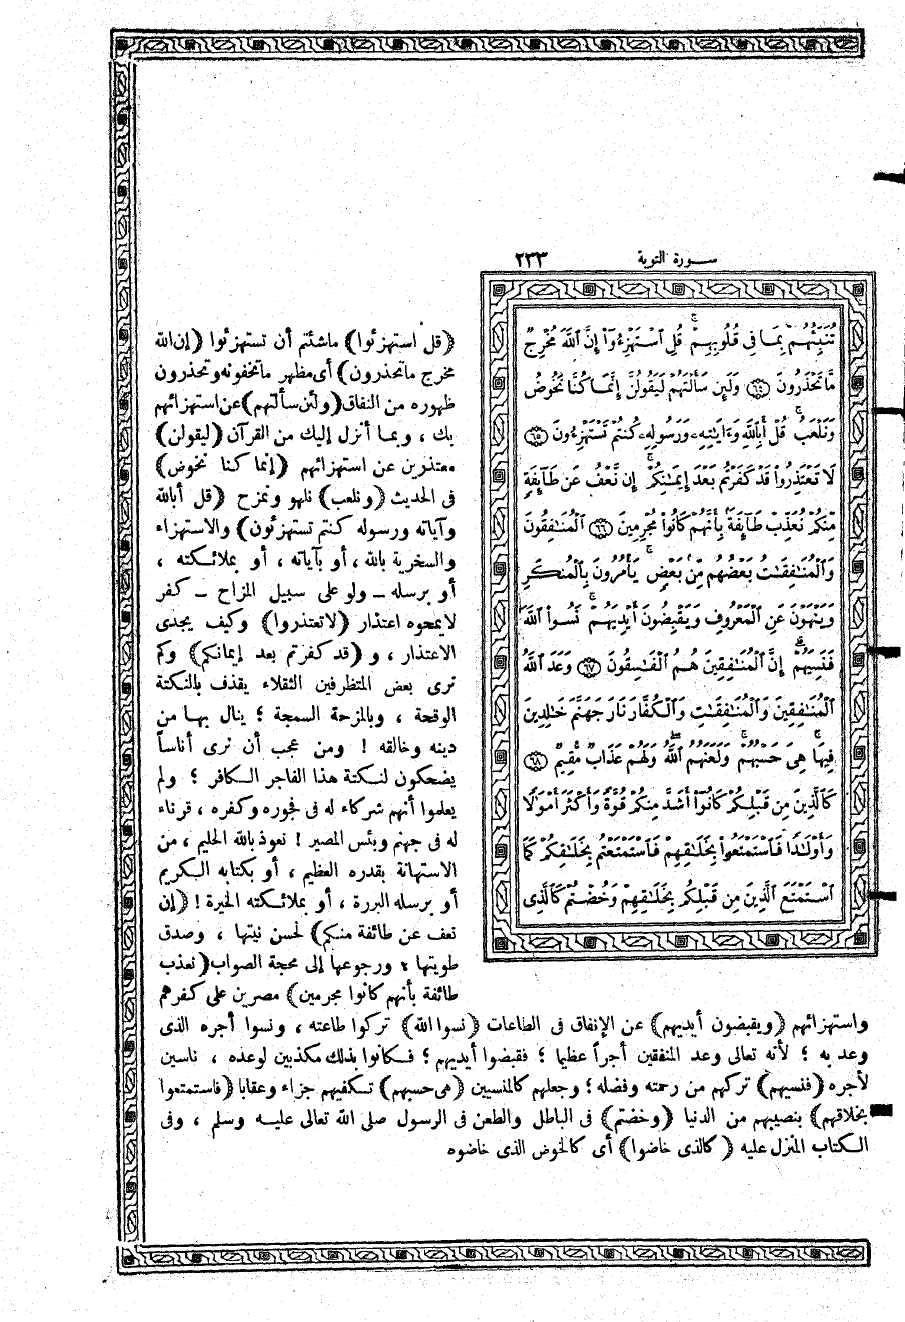 سورة التوبة ٢٣٣
تُنَبِّئُهُم بِمَا فِى قُلُوبِهِمْ ۚ قُلِ ٱسْتَهْزِءُوٓا۟ إِنَّ ٱللَّهَ مُخْرِجٌ
مَّا تَحْذَرُونَ ﴿٦٤﴾ وَلَئِن سَأَلْتَهُمْ لَيَقُولُنَّ إِنَّمَا كُنَّا نَخُوضُ
وَنَلْعَبُ ۚ قُلْ أَبِٱللَّهِ وَءَايَٰتِهِۦ وَرَسُولِهِۦ كُنتُمْ تَسْتَهْزِءُونَ ﴿٦٥﴾
لَا تَعْتَذِرُوا۟ قَدْ كَفَرْتُم بَعْدَ إِيمَٰنِكُمْ ۚ إِن نَّعْفُ عَن طَآئِفَةٍ
مِّنكُمْ نُعَذِّبْ طَآئِفَةًۢ بِأَنَّهُمْ كَانُوا۟ مُجْرِمِينَ ﴿٦٦﴾ ٱلْمُنَٰفِقُونَ
وَٱلْمُنَٰفِقَٰتُ بَعْضُهُم مِّنۢ بَعْضٍ ۚ يَأْمُرُونَ بِٱلْمُنكَرِ
وَيَنْهَوْنَ عَنِ ٱلْمَعْرُوفِ وَيَقْبِضُونَ أَيْدِيَهُمْ ۚ نَسُوا۟ ٱللَّهَ
فَنَسِيَهُمْ ۗ إِنَّ ٱلْمُنَٰفِقِينَ هُمُ ٱلْفَٰسِقُونَ ﴿٦٧﴾ وَعَدَ ٱللَّهُ
ٱلْمُنَٰفِقِينَ وَٱلْمُنَٰفِقَٰتِ وَٱلْكُفَّارَ نَارَ جَهَنَّمَ خَٰلِدِينَ
فِيهَا ۚ هِىَ حَسْبُهُمْ ۚ وَلَعَنَهُمُ ٱللَّهُ ۖ وَلَهُمْ عَذَابٌ مُّقِيمٌ ﴿٦٨﴾
كَٱلَّذِينَ مِن قَبْلِكُمْ كَانُوٓا۟ أَشَدَّ مِنكُمْ قُوَّةً وَأَكْثَرَ أَمْوَٰلًا
وَأَوْلَٰدًا فَٱسْتَمْتَعُوا۟ بِخَلَٰقِهِمْ فَٱسْتَمْتَعْتُم بِخَلَٰقِكُمْ كَمَا
ٱسْتَمْتَعَ ٱلَّذِينَ مِن قَبْلِكُم بِخَلَٰقِهِمْ وَخُضْتُمْ كَٱلَّذِى
(قل استهزئوا) ماشئتم أن تستهزئوا (إن الله
مخرج ماتحذرون) أى مظهر ماتخفونه وتحذرون
ظهوره من النفاق (ولئن سألتهم) عن استهزائهم
بك ، وبما أنزل إليك من القرآن (ليقولن)
معتذرين عن استهزائهم (إنما كنا نخوض)
فى الحديث (ونلعب) نلهو ونمزح (قل أبالله
وآياته ورسوله كنتم تستهزئون) والاستهزاء
والسخرية بالله ، أو بآياته ، أو بملائكته ،
أو برسله ــ ولو على سبيل المزاح ــ كفر
لايمحوه اعتذار (لاتعتذروا) وكيف يجدى
الاعتذار ، و (قد كفرتم بعد إيمانكم) وكم
ترى بعض المتظرفين الثقلاء يقذف بالنكتة
الوقحة ، وبالمزحة السمجة ؛ ينال بها من
دينه وخالقه ! ومن عجب أن ترى أناساً
يضحكون لنكتة هذا الفاجر الكافر ؛ ولم
يعلموا أنهم شركاء له فى فجوره وكفره ، قرناء
له فى جهنم وبئس المصير ! نعوذ بالله الحليم ، من
الاستهانة بقدره العظيم ، أو بكتابه الكريم
أو برسله البررة ، أو بملائكته الخيرة ! (إن
نعف عن طائفة منكم) لحسن نيتها ، وصدق
طويتها ؛ ورجوعها إلى محجة الصواب (نعذب
طائفة بأنهم كانوا مجرمين) مصرين على كفرهم
واستهزائهم (ويقبضون أيديهم) عن الإنفاق فى الطاعات (نسوا الله) تركوا طاعته ، ونسوا أجره الذى
وعد به ؛ لأنه تعالى وعد المنفقين أجراً عظيما ؛ فقبضوا أيديهم ؛ فكانوا بذلك مكذبين لوعده ، ناسين
لأجره (فنسيهم) تركهم من رحمته وفضله ؛ وجعلهم كالمنسيين (هى حسبهم) تكفيهم جزاء وعقابا (فاستمتعوا
بخلاقهم) بنصيبهم من الدنيا (وخضتم) فى الباطل والطعن فى الرسول صلى الله تعالى عليه وسلم ، وفى
الكتاب المنزل عليه (كالذى خاضوا) أى كالخوض الذى خاضوه